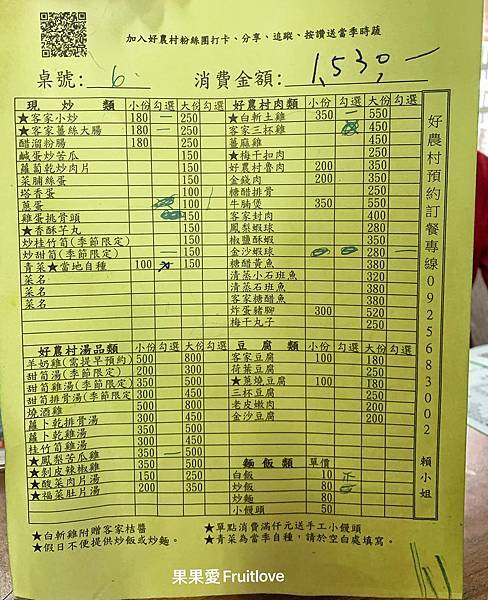 加入好農村粉絲團打卡、分享、追蹤、按讚送當季時蔬
桌號: 6 消費金額: 1,530 —
現 炒 類 小份 勾選 大份 勾選
★客家小炒 180 — 250
★客家薑絲大腸 180 250
醋溜粉腸 180 250
鹹蛋炒苦瓜 150
蘿蔔乾炒肉片 150
菜脯絲蛋 150
塔香蛋 100
蔥蛋 100
雞蛋挑骨頭 150
★香酥芋丸 150
炒桂竹筍(季節限定) 150
炒甜筍(季節限定) 150
青菜★當地自種 100 150
菜名
菜名
菜名
好農村肉類 小份 勾選 大份 勾選
★白斬土雞 350 — 550
客家三杯雞 450
薑麻雞 450
★梅干扣肉 250
好農村魯肉 200 350
金錢肉 200 350
糖醋排骨 250
牛腩煲 350 550
客家封肉 400
鳳梨蝦球 280
椒鹽酥蝦 350
金沙蝦球 280
糖醋黃魚 380
清蒸小石班魚 320
清蒸石班魚 380
客家糖醋魚 380
炸蛋豬腳 300 520
梅干丸子 250
好農村湯品類 小份 勾選 大份 勾選
羊奶雞(需提早預約) 500 800
甜筍湯(季節限定) 200 300
甜筍雞湯(季節限定) 350 500
甜筍排骨湯(季節限定) 300 450
燒酒雞 500 800
蘿卜乾排骨湯 300 450
蘿卜乾雞湯 350 500
桂竹筍雞湯 300 450
★鳳梨苦瓜雞 350 — 500
★剝皮辣椒雞 350 500
★酸菜肉片湯 200 300
★福菜肚片湯 200 350
豆 腐 類 小份 勾選 大份 勾選
客家豆腐 100 180
荷葉豆腐 250
★蔥燒豆腐 100 180
三杯豆腐 250
老皮嫩肉 200
金沙豆腐 200
麵 飯 類 單價
白飯 10 正
炒飯 80
炒麵 80
小饅頭 50
好農村預約訂餐專線0925683002 賴小姐
★白斬雞附贈客家桔醬
★假日不便提供炒飯或炒麵。
★單點消費滿仟元送手工小饅頭
★青菜為當季自種，請於空白處填寫。
果果愛Fruitlove